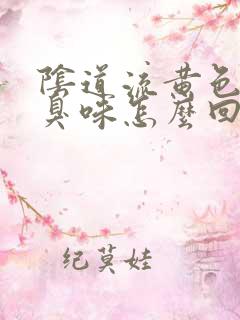 陰道流黃色
臭味怎麼回
纪莫娃